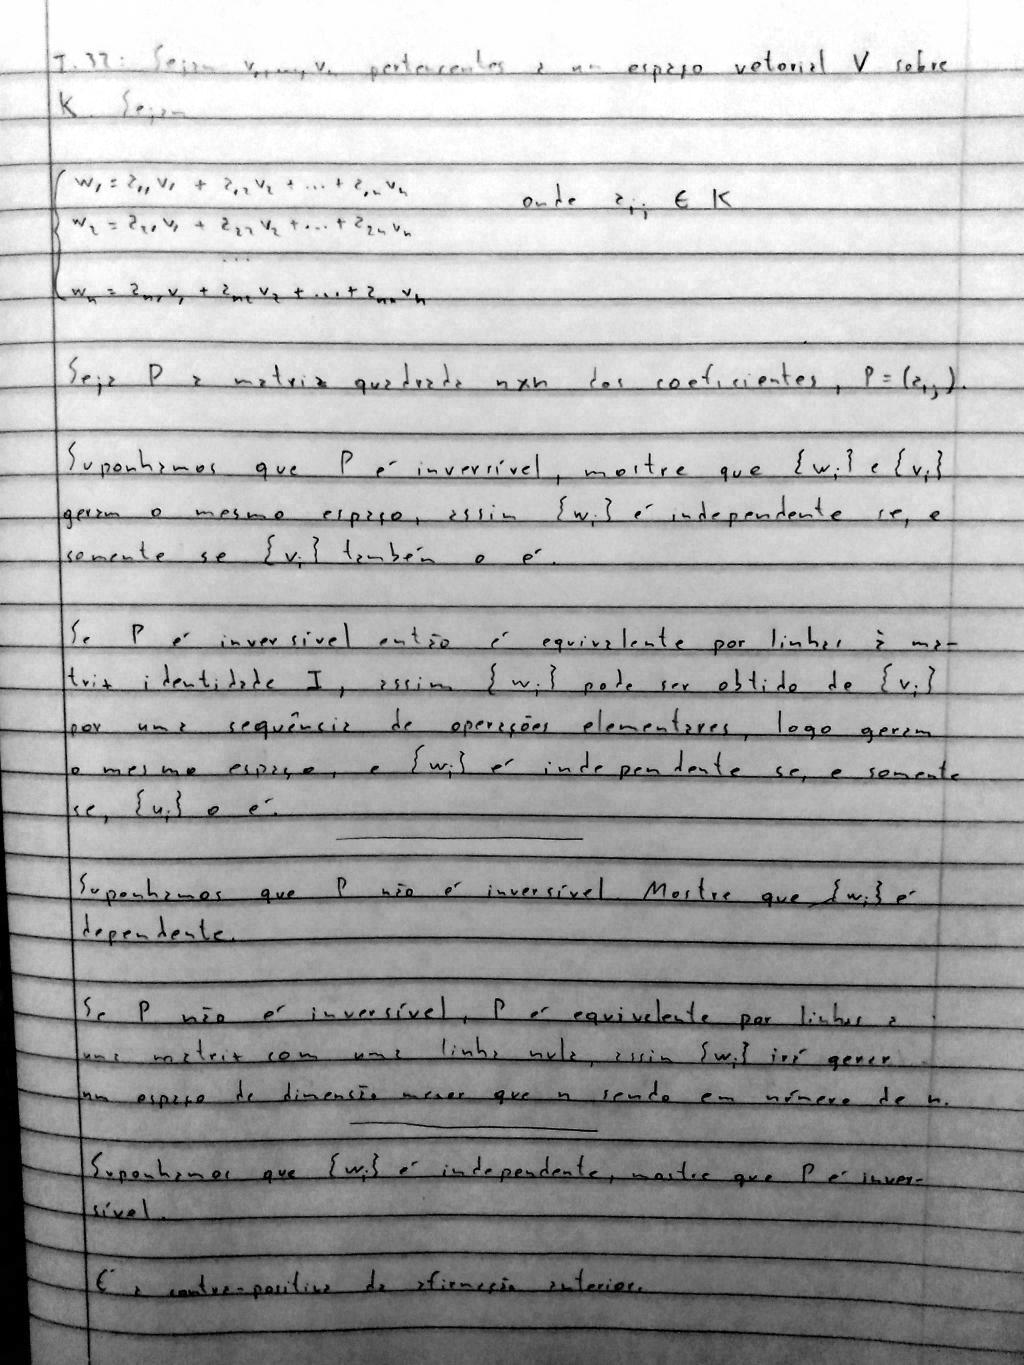 I.32: Sejam v₁,...,vₙ pertencentes a um espaço vetorial V sobre
K. Sejam
w₁ = a₁₁v₁ + a₁₂v₂ + ... + a₁ₙvₙ onde aᵢⱼ ∈ K
w₂ = a₂₁v₁ + a₂₂v₂ + ... + a₂ₙvₙ
...
wₙ = aₙ₁v₁ + aₙ₂v₂ + ... + aₙₙvₙ
Seja P a matriz quadrada n×n dos coeficientes, P = (aᵢⱼ).
Suponhamos que P é inversível, mostre que {wᵢ} e {vᵢ}
geram o mesmo espaço, assim {wᵢ} é independente se, e
somente se {vᵢ} também o é.
Se P é inversível então é equivalente por linhas à ma-
triz identidade I, assim {wᵢ} pode ser obtido de {vᵢ}
por uma sequência de operações elementares, logo geram
o mesmo espaço, e {wᵢ} é independente se, e somente
se, {uᵢ} o é.
Suponhamos que P não é inversível. Mostre que {wᵢ} é
dependente.
Se P não é inversível, P é equivalente por linhas a
uma matriz com uma linha nula, assim {wᵢ} irá gerar
um espaço de dimensão menor que n sendo em número de n.
Suponhamos que {wᵢ} é independente, mostre que P é inver-
sível.
É a contra-positiva da afirmação anterior.